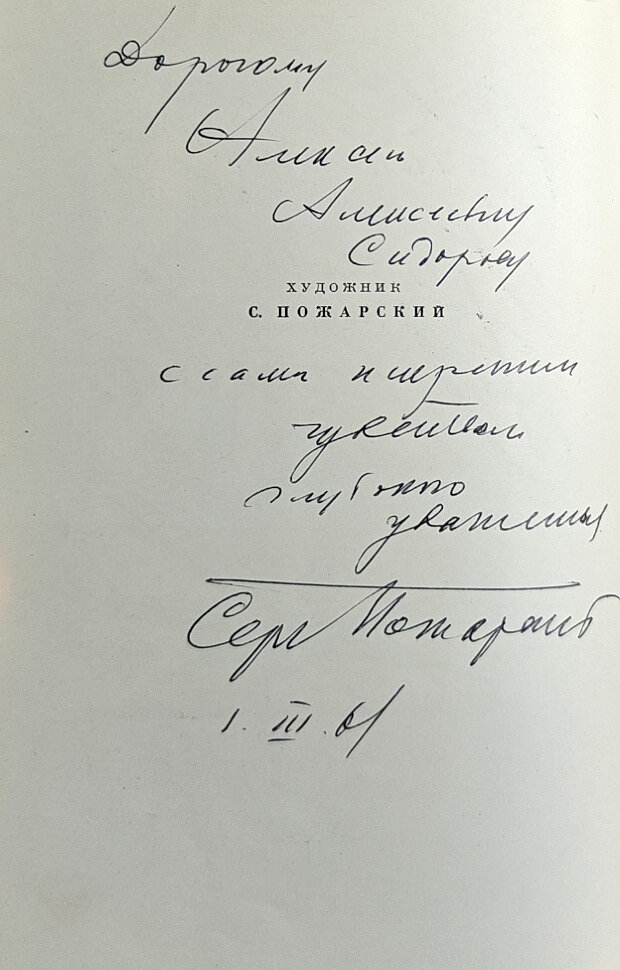 Дорогому
Алексею
Алексеевичу
Сидорову
ХУДОЖНИК
С. ПОЖАРСКИЙ
с самым искренним
чувством
глубокого
уважения
Серг Пожарский
1. III. 61